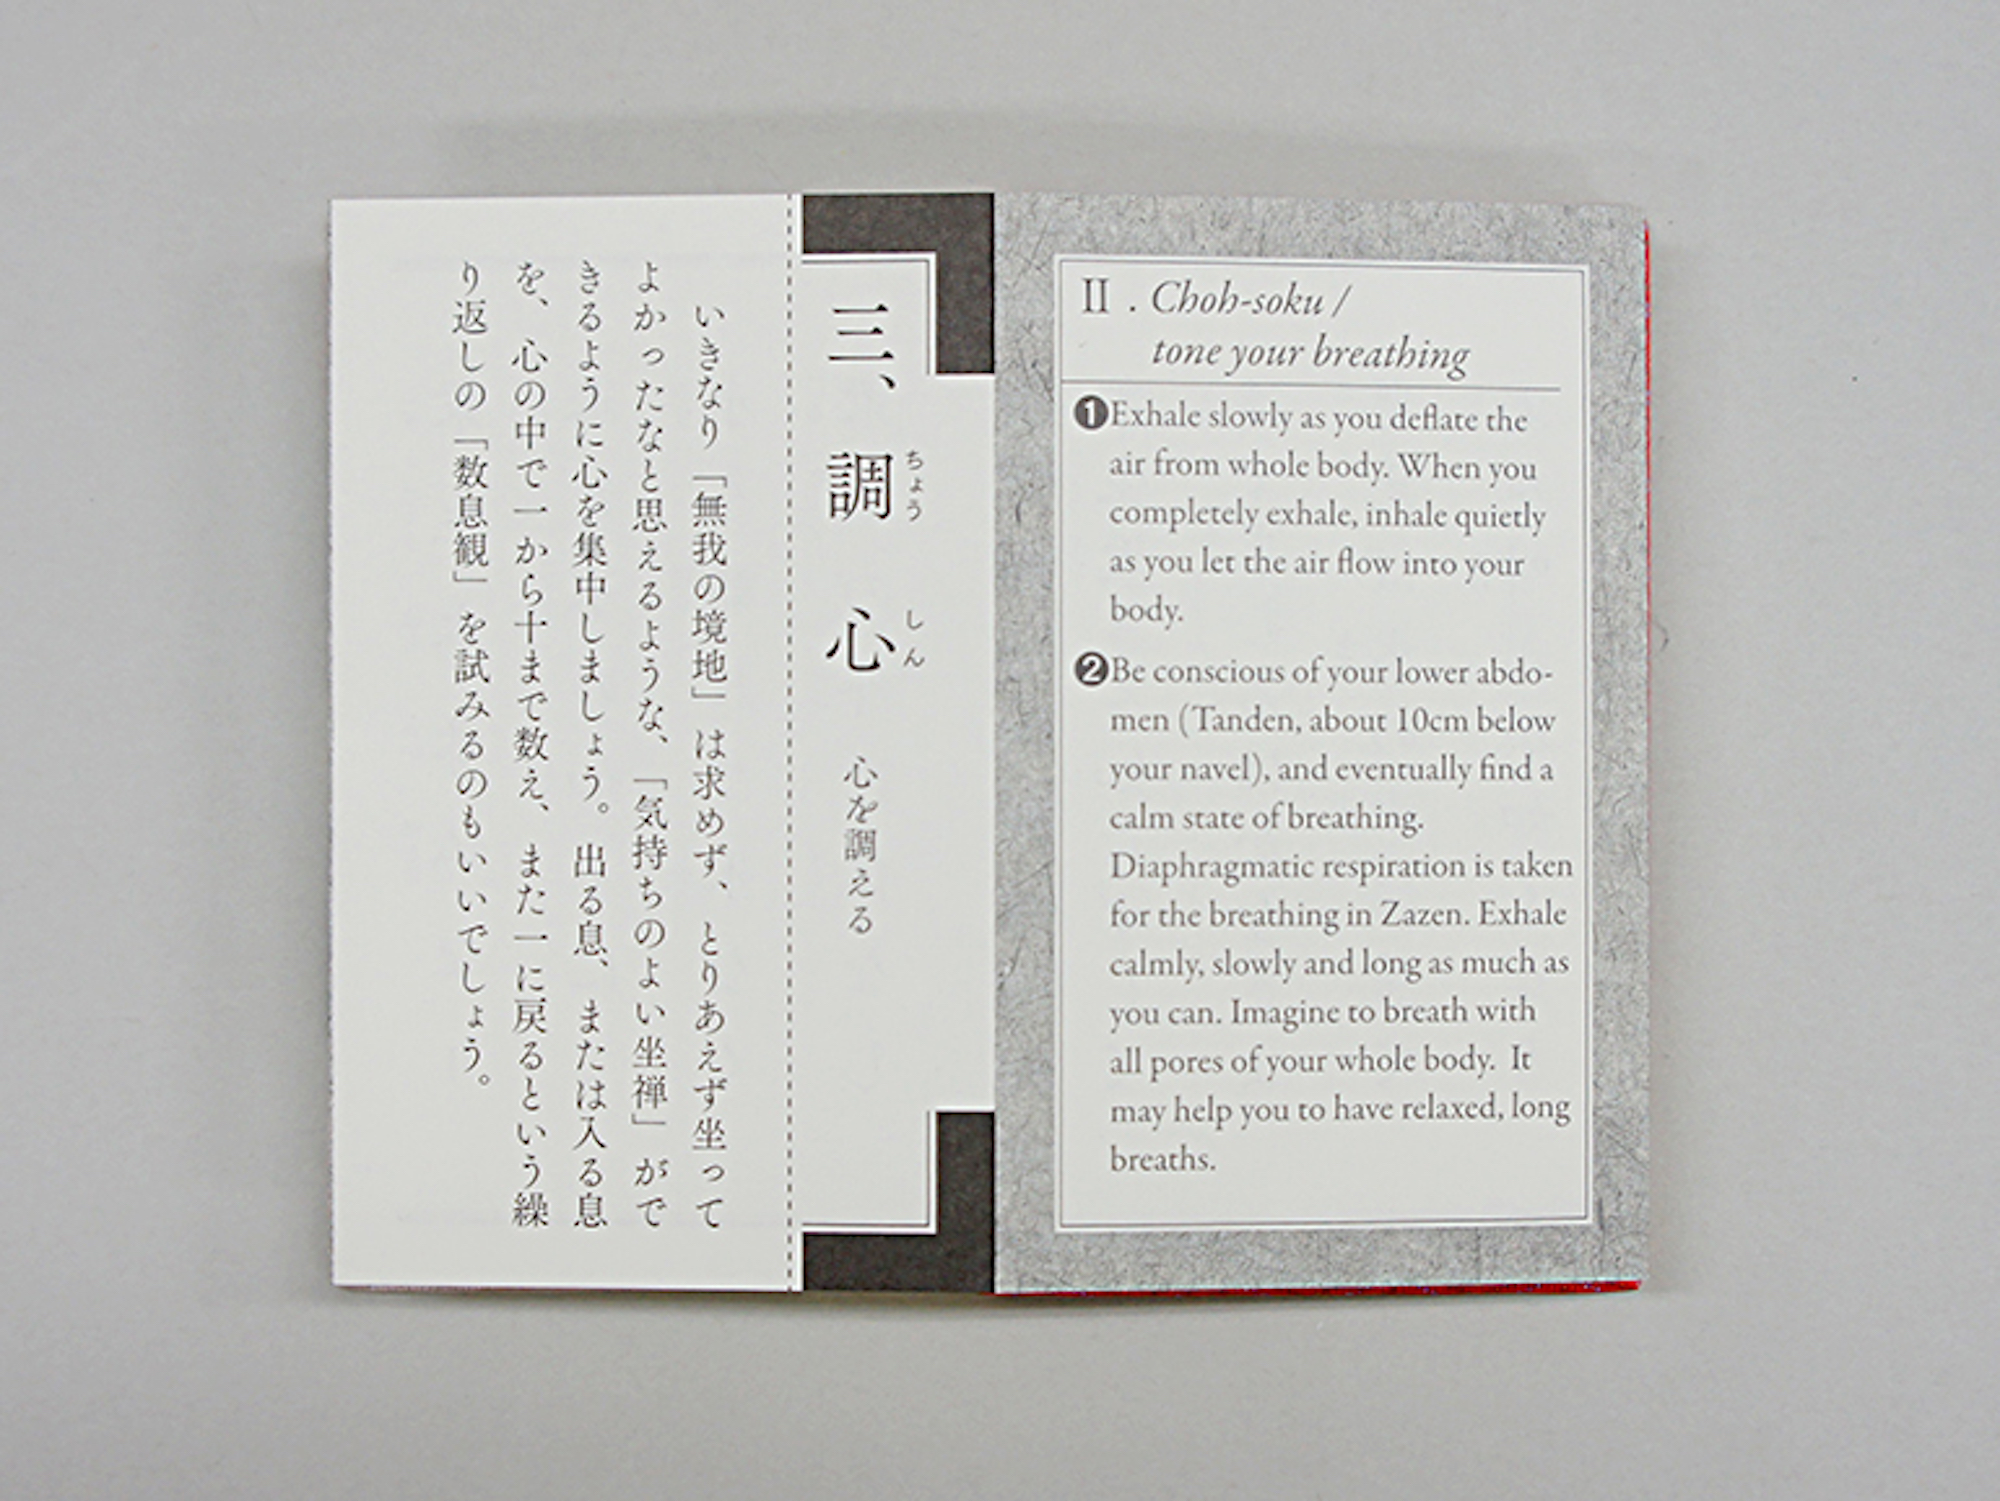 II . Choh-soku /
tone your breathing
❶Exhale slowly as you deflate the
air from whole body. When you
completely exhale, inhale quietly
as you let the air flow into your
body.
❷Be conscious of your lower abdo-
men (Tanden, about 10cm below
your navel), and eventually find a
calm state of breathing.
Diaphragmatic respiration is taken
for the breathing in Zazen. Exhale
calmly, slowly and long as much as
you can. Imagine to breath with
all pores of your whole body. It
may help you to have relaxed, long
breaths.
ちょう しん
三、調心 心を調える
いきなり「無我の境地」は求めず、とりあえず坐って
よかったなと思えるような、「気持ちのよい坐禅」がで
きるように心を集中しましょう。出る息、または入る息
を、心の中で一から十まで数え、また一に戻るという繰
り返しの「数息観」を試みるのもいいでしょう。